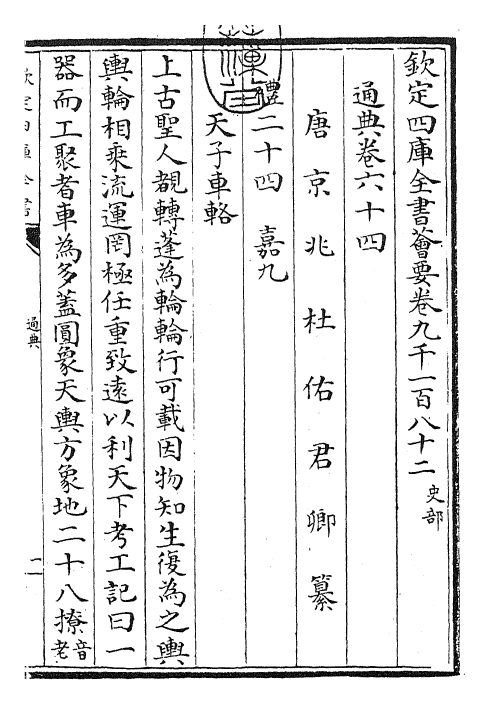 欽定四庫全書薈要卷九千一百八十二 史部
通典卷六十四
唐京兆杜佑君卿纂
禮二十四 嘉九
天子車輅
上古聖人覩轉蓬為輪輪行可載因物知生復為之輿
輿輪相乘流運罔極任重致逺以利天下考工記曰一
器而工聚者車為多蓋圓象天輿方象地二十八橑音老
欽定四庫全書
通典